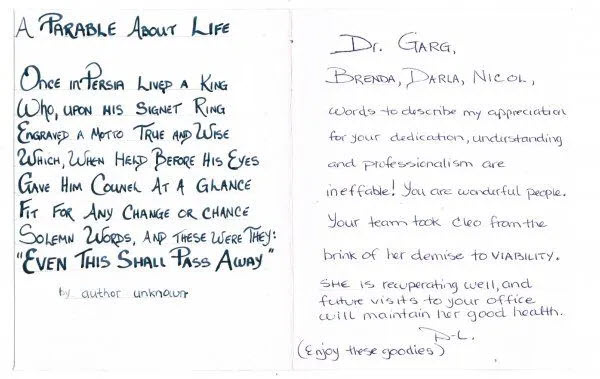 A Parable About Life
Once in Persia Lived a King
Who, upon his Signet Ring
Engraved a Motto True and Wise
Which, When Held Before His Eyes
Gave Him Counel At a Glance
Fit For Any Change or Chance
Solemn Words, And these Were They:
"Even This Shall Pass Away"
by author unknown
Dr. Garg,
Brenda, Darla, Nicol,
Words to describe my appreciation
for your dedication, understanding
and professionalism are
ineffable! You are wonderful people.
Your team took Cleo from the
brink of her demise to VIABILITY.
SHE is recuperating well, and
future visits to your office
will maintain her good health.
D-L.
(Enjoy these goodies)